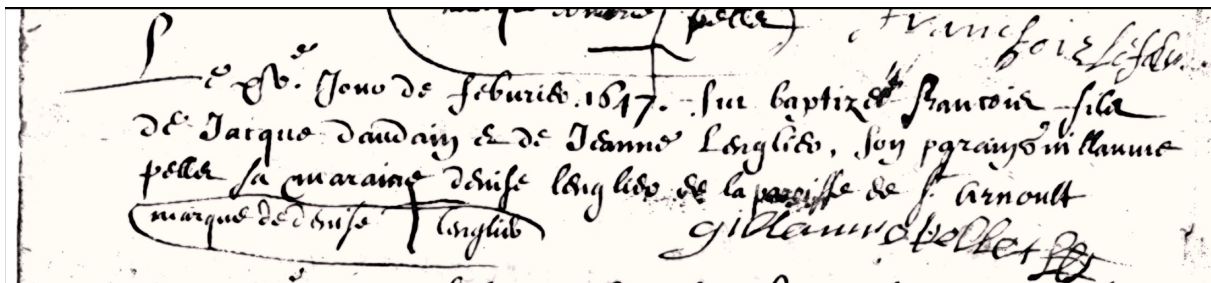 marque pelle
francois Lefeb
Le xxve Jour de feburier .1647. fut baptizé francois fils
de Jacque daudain et de Jeanne Lenglier, son parain Guillaume
pelle sa maraine denise lenglier de la paroisse de St Arnoult
marque de denise lenglier
gillaume pellet